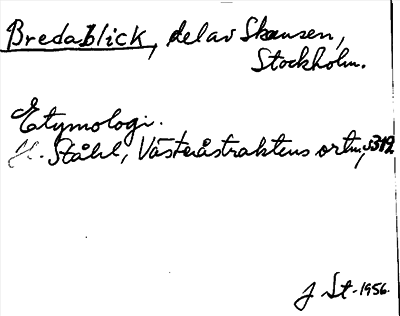 Bredablick, del av Skansen,
Stockholm.
Etymologi.
H. Ståhl, Västeråstraktens ortn, s 319.
J St. 1956.